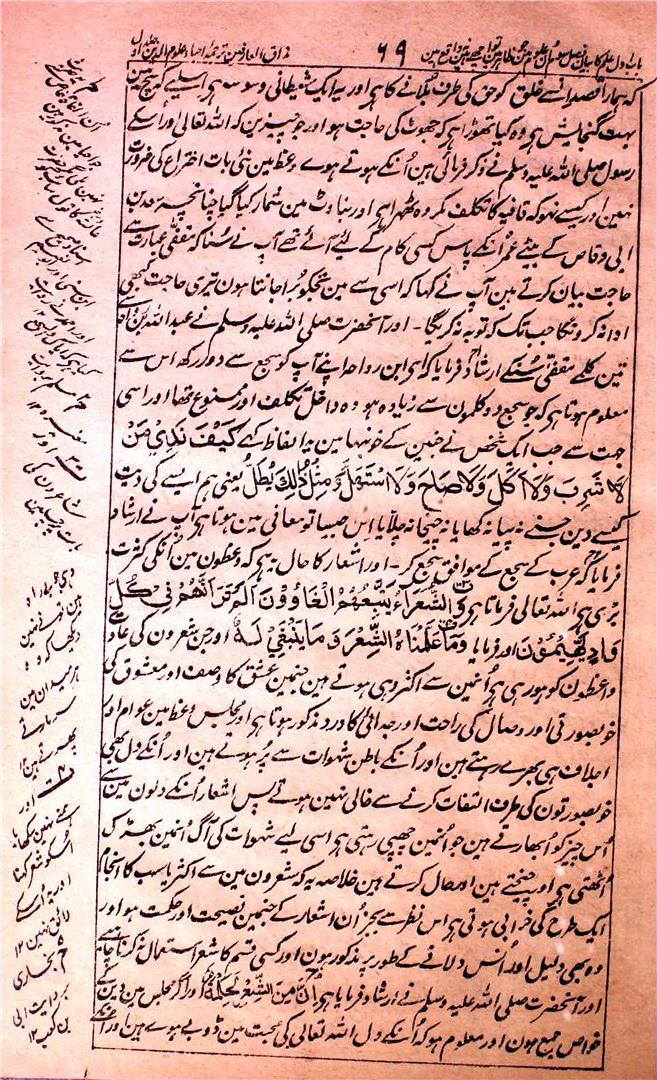 مذاق العارفین ترجمہ احیاء علوم الدین جلد اول
۶۹
باب اول علم کا بیان فصل سوم ان علوم مین جو ظاہر مین تو اچھے ہین پر واقع مین
کہ ہمارا قصد اس سے خلق کو حق کی طرف بلانے کا ہی اور یہ ایک شیطانی وسوسہ ہی اسلیے کہ سچ مین
بہت گنجایش ہی وہ کیا تھوڑا ہی کہ جھوٹ کی حاجت ہو اور جو چیزین کہ اللہ تعالی اور اُسکے
رسول صلی اللہ علیہ وسلم نے ذکر فرمائی ہین اُنکے ہوتے ہوے وعظ مین نئی بات اختراع کی ضرورت
نہین اور کیسے نہو کہ قافیہ کا تکلف مکروہ ٹھہرا ہی اور بناوٹ مین شمار کیا گیا چنانچہ سعد بن
ابی وقاص کے بیٹے عمر اُنکے پاس کسی کام کے لیئے آئے تھے آپ نے سُنا کہ مقفّی عبارت سے
حاجت بیان کرتے ہین آپ نے کہا کہ اسی سے مین تجھکو بُرا جانتا ہون تیری حاجت کبھی
ادا نہ کرونگا جب تک کہ توبہ نہ کریگا۔ اور آنحضرت صلی اللہ علیہ وسلم نے عبداللہ بن رواحہ سے
تین کلمے مقفّی سُنکے ارشاد فرمایا کہ ای ابن رواحہ اپنے آپ کو سجع سے دور رکھ اس سے
معلوم ہوتا ہی کہ جو سجع دو کلمون سے زیادہ ہو وہ داخل تکلف اور ممنوع تھا اور اسی
جہت سے جب ایک شخص نے جنین کے خونبہا مین یہ الفاظ کہے كَيْفَ نَدِىْ مَنْ
لَا شَرِبَ وَلَا أَكَلَ وَلَا صَاحَ وَلَا اسْتَهَلَّ وَمِثْلُ ذٰلِكَ يُطَلُّ یعنی ہم ایسے کی دیت
کیسے دین جسنے نہ پیا نہ کھایا نہ چیخا نہ چلّایا اس جیسا تو معافی مین ہوتا ہی آپ نے ارشاد
فرمایا کہ عرب کے سجع کے موافق سجع کر۔ اور اشعار کا حال یہ ہی کہ وعظون مین اُنکی کثرت
بُری ہی اللہ تعالی فرماتا ہی وَالشُّعَرَاءُ يَتَّبِعُهُمُ الْغَاوُوْنَ اَلَمْ تَرَ اَنَّهُمْ فِىْ كُلِّ
وَادٍ يَّهِيْمُوْنَ اور فرمایا وَمَا عَلَّمْنَاهُ الشِّعْرَ وَمَا يَنْبَغِىْ لَهٗ اور جن شعرون کی عادت
واعظون کو ہو رہی ہی اُنمین سے اکثر وہی ہوتے ہین جنمین عشق کا وصف اور معشوق کی
خوبصورتی اور وصال کی راحت اور جدائی کا درد مذکور ہوتا ہی اور مجلس وعظ مین عوام اور
اجلاف ہی بھرے رہتے ہین اور اُنکے باطن شہوات سے پُر ہوتے ہین اور اُنکے دل بھی
خوبصورتون کی طرف التفات کرنے سے خالی نہین ہوتے پس اشعار اُنکے دلون مین سے
اُس چیز کو اُبھارتے ہین جو اُنمین چھپی رہتی ہی اسی لیے شہوات کی آگ اُنمین بھڑک
اُٹھتی ہی اور چیختے ہین اور حال کرتے ہین خلاصہ یہ کہ شعرون مین سے اکثر یا سب کا انجام
ایک طرح کی خرابی ہوتی ہی اس نظر سے بجز اُن اشعار کے جنمین نصیحت اور حکمت ہو اور
وہ بھی دلیل اور اُنس دلانے کے طور پر مذکور ہون اور کسی قسم کا شعر استعمال نہ کرنا چاہیے
اور آنحضرت صلی اللہ علیہ وسلم نے ارشاد فرمایا ہی اِنَّ مِنَ الشِّعْرِ لَحِكْمَةً اور اگر مجلس مین دین کے
خواص جمع ہون اور معلوم ہو کہ اُنکے دل اللہ تعالی کی محبت مین ڈوبے ہوے ہین اور اُنکے
شاعرون کی
بات پر چلین
دیکھا کہ وہ
ہر میدان مین
سر مارتے
پھرتے ہین ۱۲
اور
ہمنے نہین سکھایا
اُسکو شعر کہنا
اور یہ اُسکے
لائق نہین ۱۲
بخاری
بروایت ابی
بن کعب ۱۲